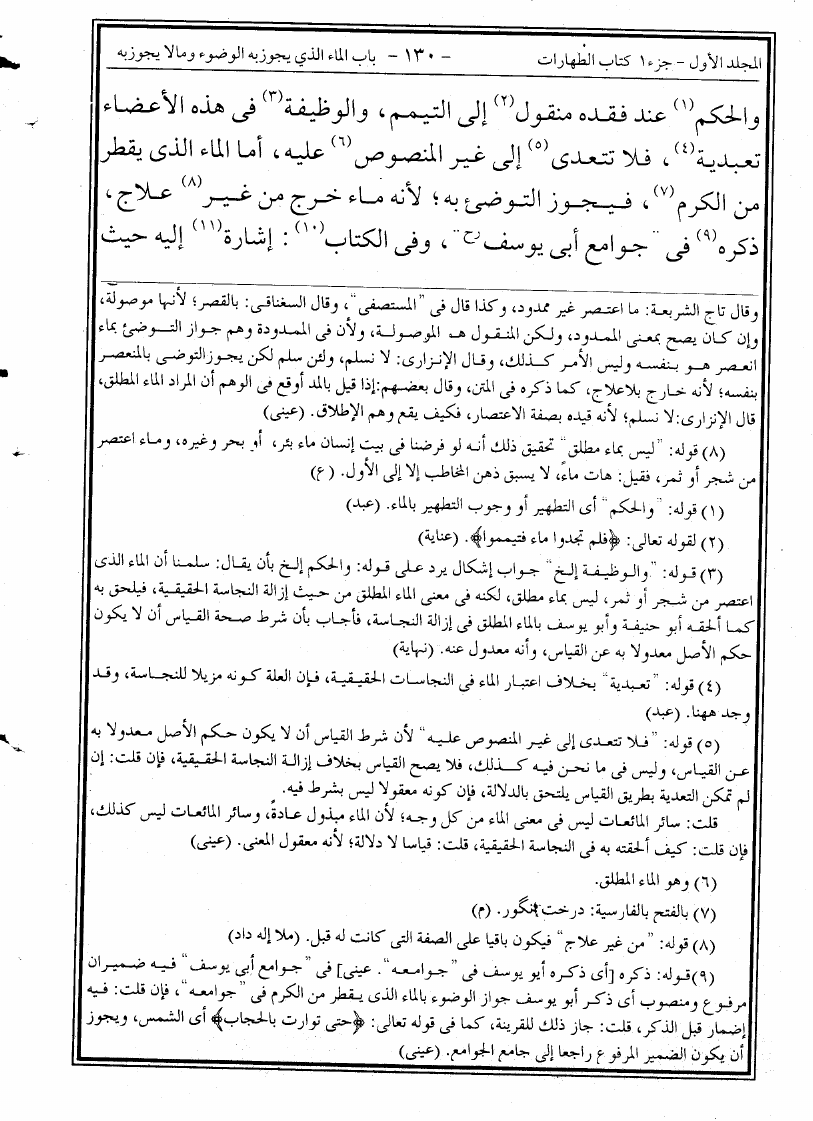 المجلد الأول - جزء ١ كتاب الطهارات - ١٣٠ - باب الماء الذي يجوز به الوضوء ومالا يجوز به
والحكم(١) عند فقده منقول(٢) إلى التيمم، والوظيفة(٣) فى هذه الأعضاء
تعبدية(٤)، فلا تتعدى(٥) إلى غير المنصوص(٦) عليه، أما الماء الذى يقطر
من الكرم(٧)، فيجوز التوضئ به؛ لأنه ماء خرج من غير(٨) علاج،
ذكره(٩) فى "جوامع أبى يوسف رح"، وفى الكتاب(١٠): إشارة(١١) إليه حيث
وقال تاج الشريعة: ما اعتصر غير ممدود، وكذا قال فى "المستصفى"، وقال السغناقى: بالقصر؛ لأنها موصولة،
وإن كان يصح بمعنى الممدود، ولكن المنقول هـ الموصولة، ولأن فى الممدودة وهم جواز التوضئ بماء
انعصر هو بنفسه وليس الأمر كذلك، وقال الإنزارى: لا نسلم، ولئن سلم لكن يجوز التوضى بالمنعصر
بنفسه؛ لأنه خارج بلاعلاج، كما ذكره فى المتن، وقال بعضهم: إذا قيل بالمد أوقع فى الوهم أن المراد الماء المطلق،
قال الإنزارى: لا نسلم؛ لأنه قيده بصفة الاعتصار، فكيف يقع وهم الإطلاق. (عينى)
(٨) قوله: "ليس بماء مطلق" تحقيق ذلك أنه لو فرضنا فى بيت إنسان ماء بئر، أو بحر وغيره، وماء اعتصر
من شجر أو ثمر، فقيل: هات ماءً، لا يسبق ذهن المخاطب إلا إلى الأول. (ع)
(١) قوله: "والحكم" أى التطهير أو وجوب التطهير بالماء. (عبد)
(٢) لقوله تعالى: ﴿فلم تجدوا ماء فتيمموا﴾. (عناية)
(٣) قوله: "والوظيفة إلخ" جواب إشكال يرد على قوله: والحكم إلخ بأن يقال: سلمنا أن الماء الذى
اعتصر من شجر أو ثمر، ليس بماء مطلق، لكنه فى معنى الماء المطلق من حيث إزالة النجاسة الحقيقية، فيلحق به
كما ألحقه أبو حنيفة وأبو يوسف بالماء المطلق فى إزالة النجاسة، فأجاب بأن شرط صحة القياس أن لا يكون
حكم الأصل معدولا به عن القياس، وأنه معدول عنه. (نهاية)
(٤) قوله: "تعبدية" بخلاف اعتبار الماء فى النجاسات الحقيقية، فإن العلة كونه مزيلا للنجاسة، وقد
وجد ههنا. (عبد)
(٥) قوله: "فلا تتعدى إلى غير المنصوص عليه" لأن شرط القياس أن لا يكون حكم الأصل معدولا به
عن القياس، وليس فى ما نحن فيه كذلك، فلا يصح القياس بخلاف إزالة النجاسة الحقيقية، فإن قلت: إن
لم تمكن التعدية بطريق القياس يلتحق بالدلالة، فإن كونه معقولا ليس بشرط فيه.
قلت: سائر المائعات ليس فى معنى الماء من كل وجه؛ لأن الماء مبذول عادةً، وسائر المائعات ليس كذلك،
فإن قلت: كيف ألحقته به فى النجاسة الحقيقية، قلت: قياسا لا دلالة؛ لأنه معقول المعنى. (عينى)
(٦) وهو الماء المطلق.
(٧) بالفتح بالفارسية: درخت انگور. (م)
(٨) قوله: "من غير علاج" فيكون باقيا على الصفة التى كانت له قبل. (ملا إله داد)
(٩) قوله: ذكره [أى ذكره أبو يوسف فى "جوامعه". عينى] فى "جوامع أبى يوسف" فيه ضميران
مرفوع ومنصوب أى ذكر أبو يوسف جواز الوضوء بالماء الذى يقطر من الكرم فى "جوامعه"، فإن قلت: فيه
إضمار قبل الذكر، قلت: جاز ذلك للقرينة، كما فى قوله تعالى: ﴿حتى توارت بالحجاب﴾ أى الشمس، ويجوز
أن يكون الضمير المرفوع راجعا إلى جامع الجوامع. (عينى)